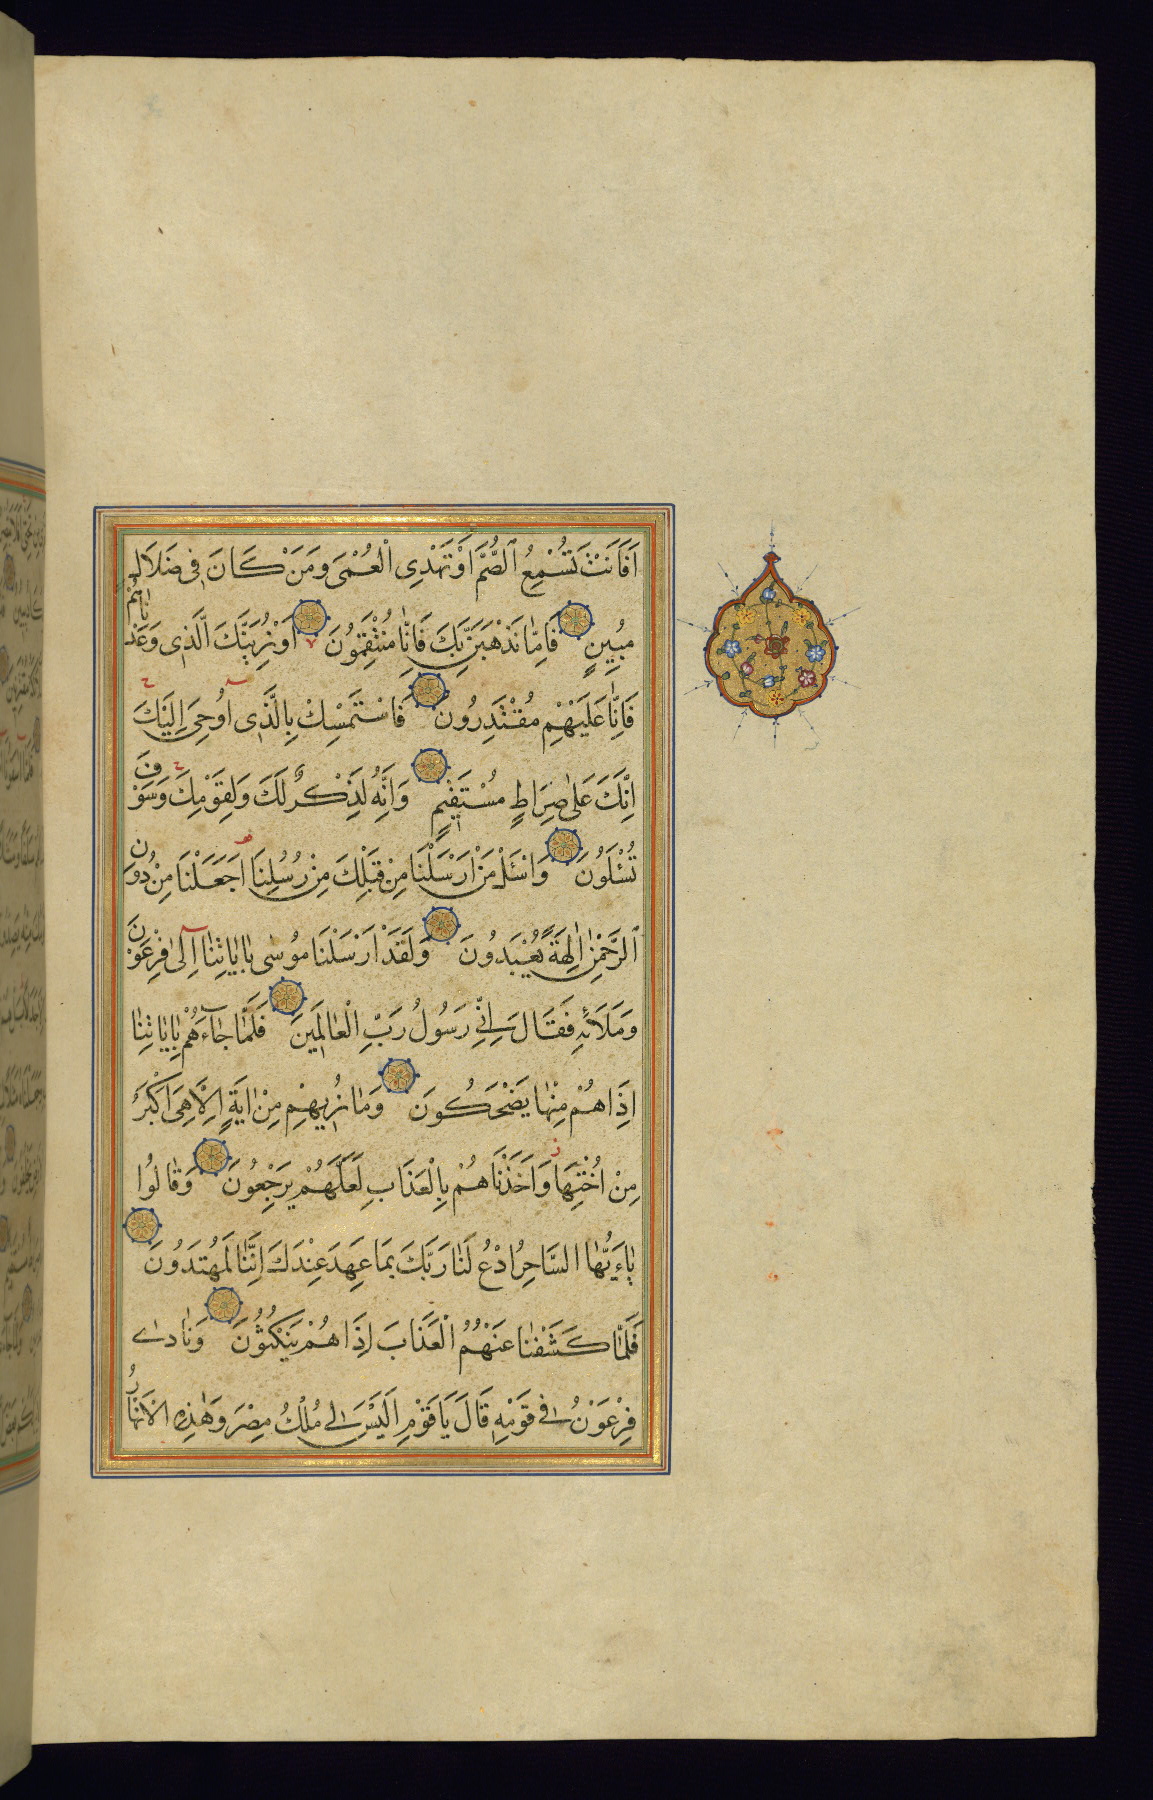 اَفَاَنْتَ تُسْمِعُ الصُّمَّ اَوْ تَهْدِى الْعُمْىَ وَمَنْ كَانَ فِى ضَلَالٍ
مُبِينٍ فَاِمَّا نَذْهَبَنَّ بِكَ فَاِنَّا مِنْهُمْ مُنْتَقِمُونَ اَوْ نُرِيَنَّكَ الَّذِى وَعَدْنَاهُمْ
فَاِنَّا عَلَيْهِمْ مُقْتَدِرُونَ فَاسْتَمْسِكْ بِالَّذِى اُوحِىَ اِلَيْكَ
اِنَّكَ عَلٰى صِرَاطٍ مُسْتَقِيمٍ وَاِنَّهُ لَذِكْرٌ لَكَ وَلِقَوْمِكَ وَسَوْفَ
تُسْئَلُونَ وَاسْئَلْ مَنْ اَرْسَلْنَا مِنْ قَبْلِكَ مِنْ رُسُلِنَا اَجَعَلْنَا مِنْ دُونِ
الرَّحْمٰنِ اٰلِهَةً يُعْبَدُونَ وَلَقَدْ اَرْسَلْنَا مُوسٰى بِاٰيَاتِنَا اِلٰى فِرْعَوْنَ
وَمَلَائِهِ فَقَالَ اِنِّى رَسُولُ رَبِّ الْعَالَمِينَ فَلَمَّا جَاءَهُمْ بِاٰيَاتِنَا
اِذَا هُمْ مِنْهَا يَضْحَكُونَ وَمَا نُرِيهِمْ مِنْ اٰيَةٍ اِلَّا هِىَ اَكْبَرُ
مِنْ اُخْتِهَا وَاَخَذْنَاهُمْ بِالْعَذَابِ لَعَلَّهُمْ يَرْجِعُونَ وَقَالُوا
يَاءَيُّهَا السَّاحِرُ ادْعُ لَنَا رَبَّكَ بِمَا عَهِدَ عِنْدَكَ اِنَّنَا لَمُهْتَدُونَ
فَلَمَّا كَشَفْنَا عَنْهُمُ الْعَذَابَ اِذَا هُمْ يَنْكُثُونَ وَنَادٰى
فِرْعَوْنُ فِى قَوْمِهِ قَالَ يَا قَوْمِ اَلَيْسَ لِى مُلْكُ مِصْرَ وَهٰذِهِ الْاَنْهَارُ